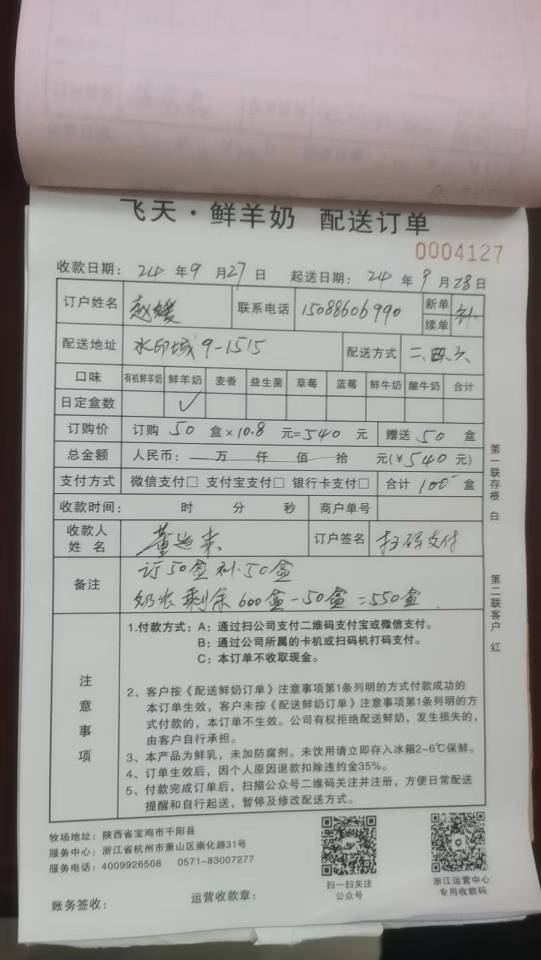 飞天·鲜羊奶 配送订单
0004127
收款日期： 24 年 9 月 27 日 起送日期： 24 年 9 月 28 日
订户姓名 赵媛 联系电话 15088606990 新单 补
续单
配送地址 水印城9-1515 配送方式 二.四.六
口味 有机鲜羊奶 鲜羊奶 麦香 益生菌 草莓 蓝莓 鲜牛奶 酸牛奶 合计
日定盒数 ✓
订购价 订购 50 盒×10.8 元=540 元 赠送 50 盒
总金额 人民币： 万 仟 佰 拾 元(¥540元)
支付方式 微信支付□ 支付宝支付□ 银行卡支付□ 合计 100 盒
收款时间： 时 分 秒 商户单号
收款人
姓 名 订户签名 扫码支付
备注 订50盒补50盒
奶农剩余600盒-50盒=550盒
注意事项
1.付款方式：A：通过扫公司支付二维码支付宝或微信支付。
B：通过公司所属的卡机或扫码机打码支付。
C：本订单不收取现金。
2、客户按《配送鲜奶订单》注意事项第1条列明的方式付款成功的
本订单生效，客户未按《配送鲜奶订单》注意事项第1条列明的方
式付款的，本订单不生效。公司有权拒绝配送鲜奶，发生损失的，
由客户自行承担。
3、本产品为鲜乳，未加防腐剂。未饮用请立即存入冰箱2-6℃保鲜。
4、订单生效后，因个人原因退款扣除违约金35%。
5、付款完成订单后，扫描公众号二维码关注并注册，方便日常配送
提醒和自行起送，暂停及修改配送方式。
第一联存根 白
第二联客户 红
牧场地址：陕西省宝鸡市千阳县
服务中心：浙江省杭州市萧山区崇化路31号
服务电话：4009926508 0571-83007277
扫一扫关注
公众号
浙江运营中心
专用收款码
账务签收： 运营收款章：